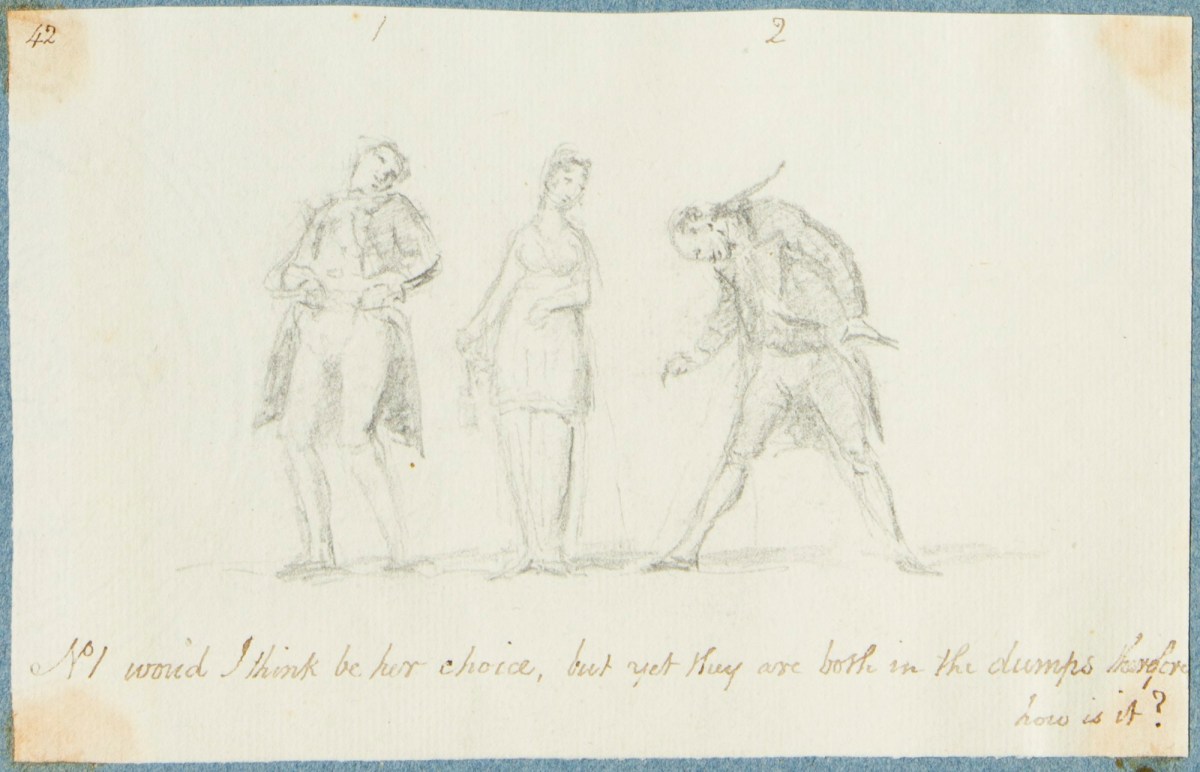 42 1 2
No 1 wou'd I think be her choice, but yet they are both in the dumps therefore
how is it?